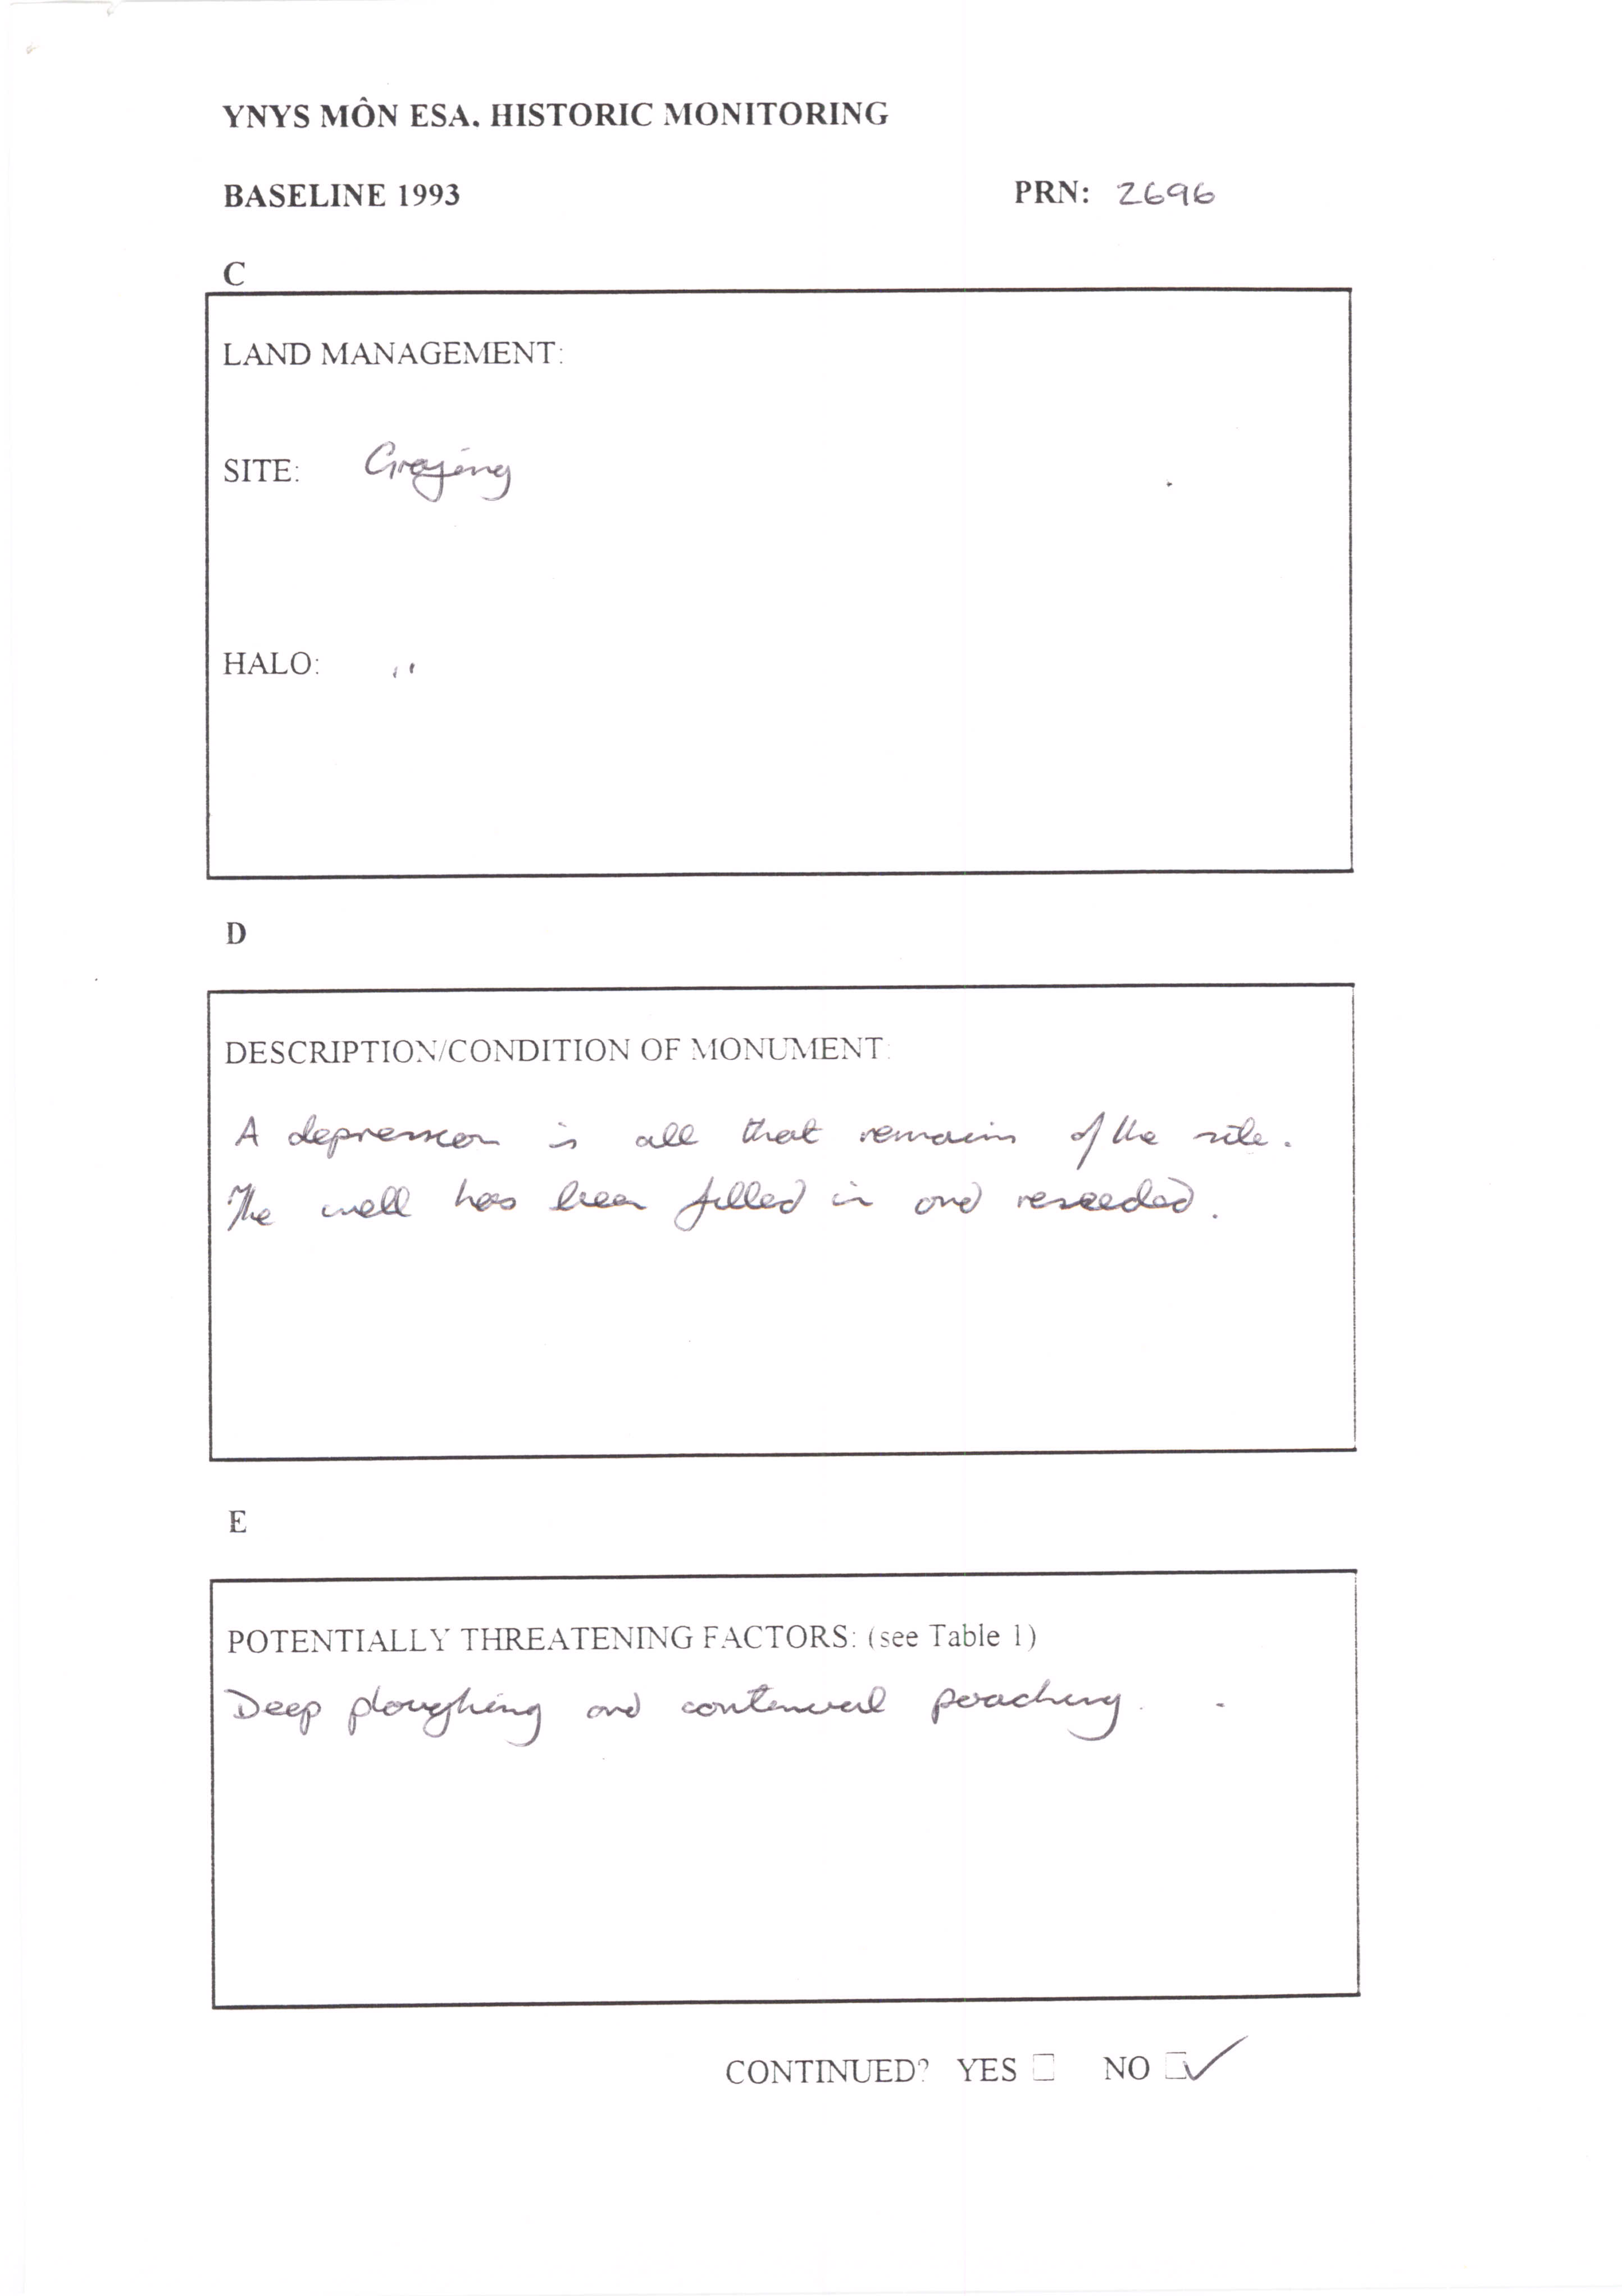 YNYS MÔN ESA. HISTORIC MONITORING
BASELINE 1993 PRN: 2696
C
LAND MANAGEMENT:
SITE: Grazing
HALO: "
D
DESCRIPTION/CONDITION OF MONUMENT:
A depression is all that remains of the site.
The well has been filled in and reseeded.
E
POTENTIALLY THREATENING FACTORS: (see Table 1)
Deep ploughing and continual poaching.
CONTINUED? YES ☐ NO ☑